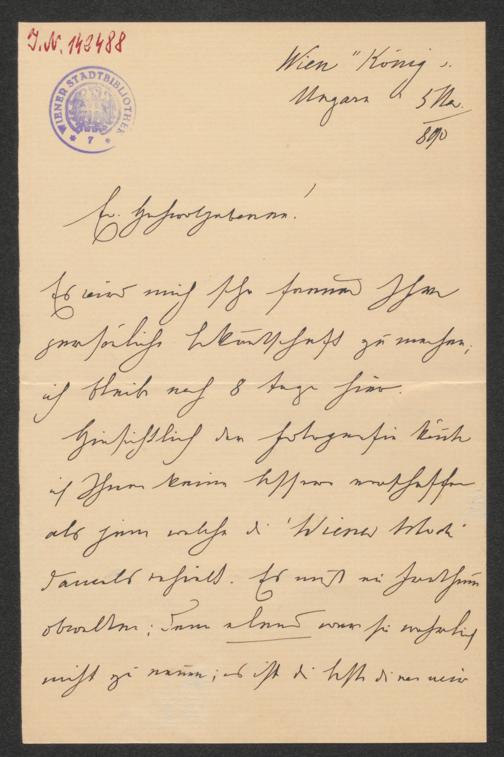 J.N. 142488
WIENER STADTBIBLIOTHEK
7
Wien "König v.
Ungarn" 5 Mai
890
Ew. Hochwolgeboren!
Es wird mich sehr freuen Ihre
persönliche bekantschaft zu machen;
ich bleibe noch 8 Tage hier.
Hinsichtlich der Fotografie könte
ich Ihnen keine bessere verschaffen
als jene welche die 'Wiener Mode'
damals erhielt. Es muß ein Irrthum
obwalten; denn elend war sie wahrlich
nicht zu nennen; es ist die beste die